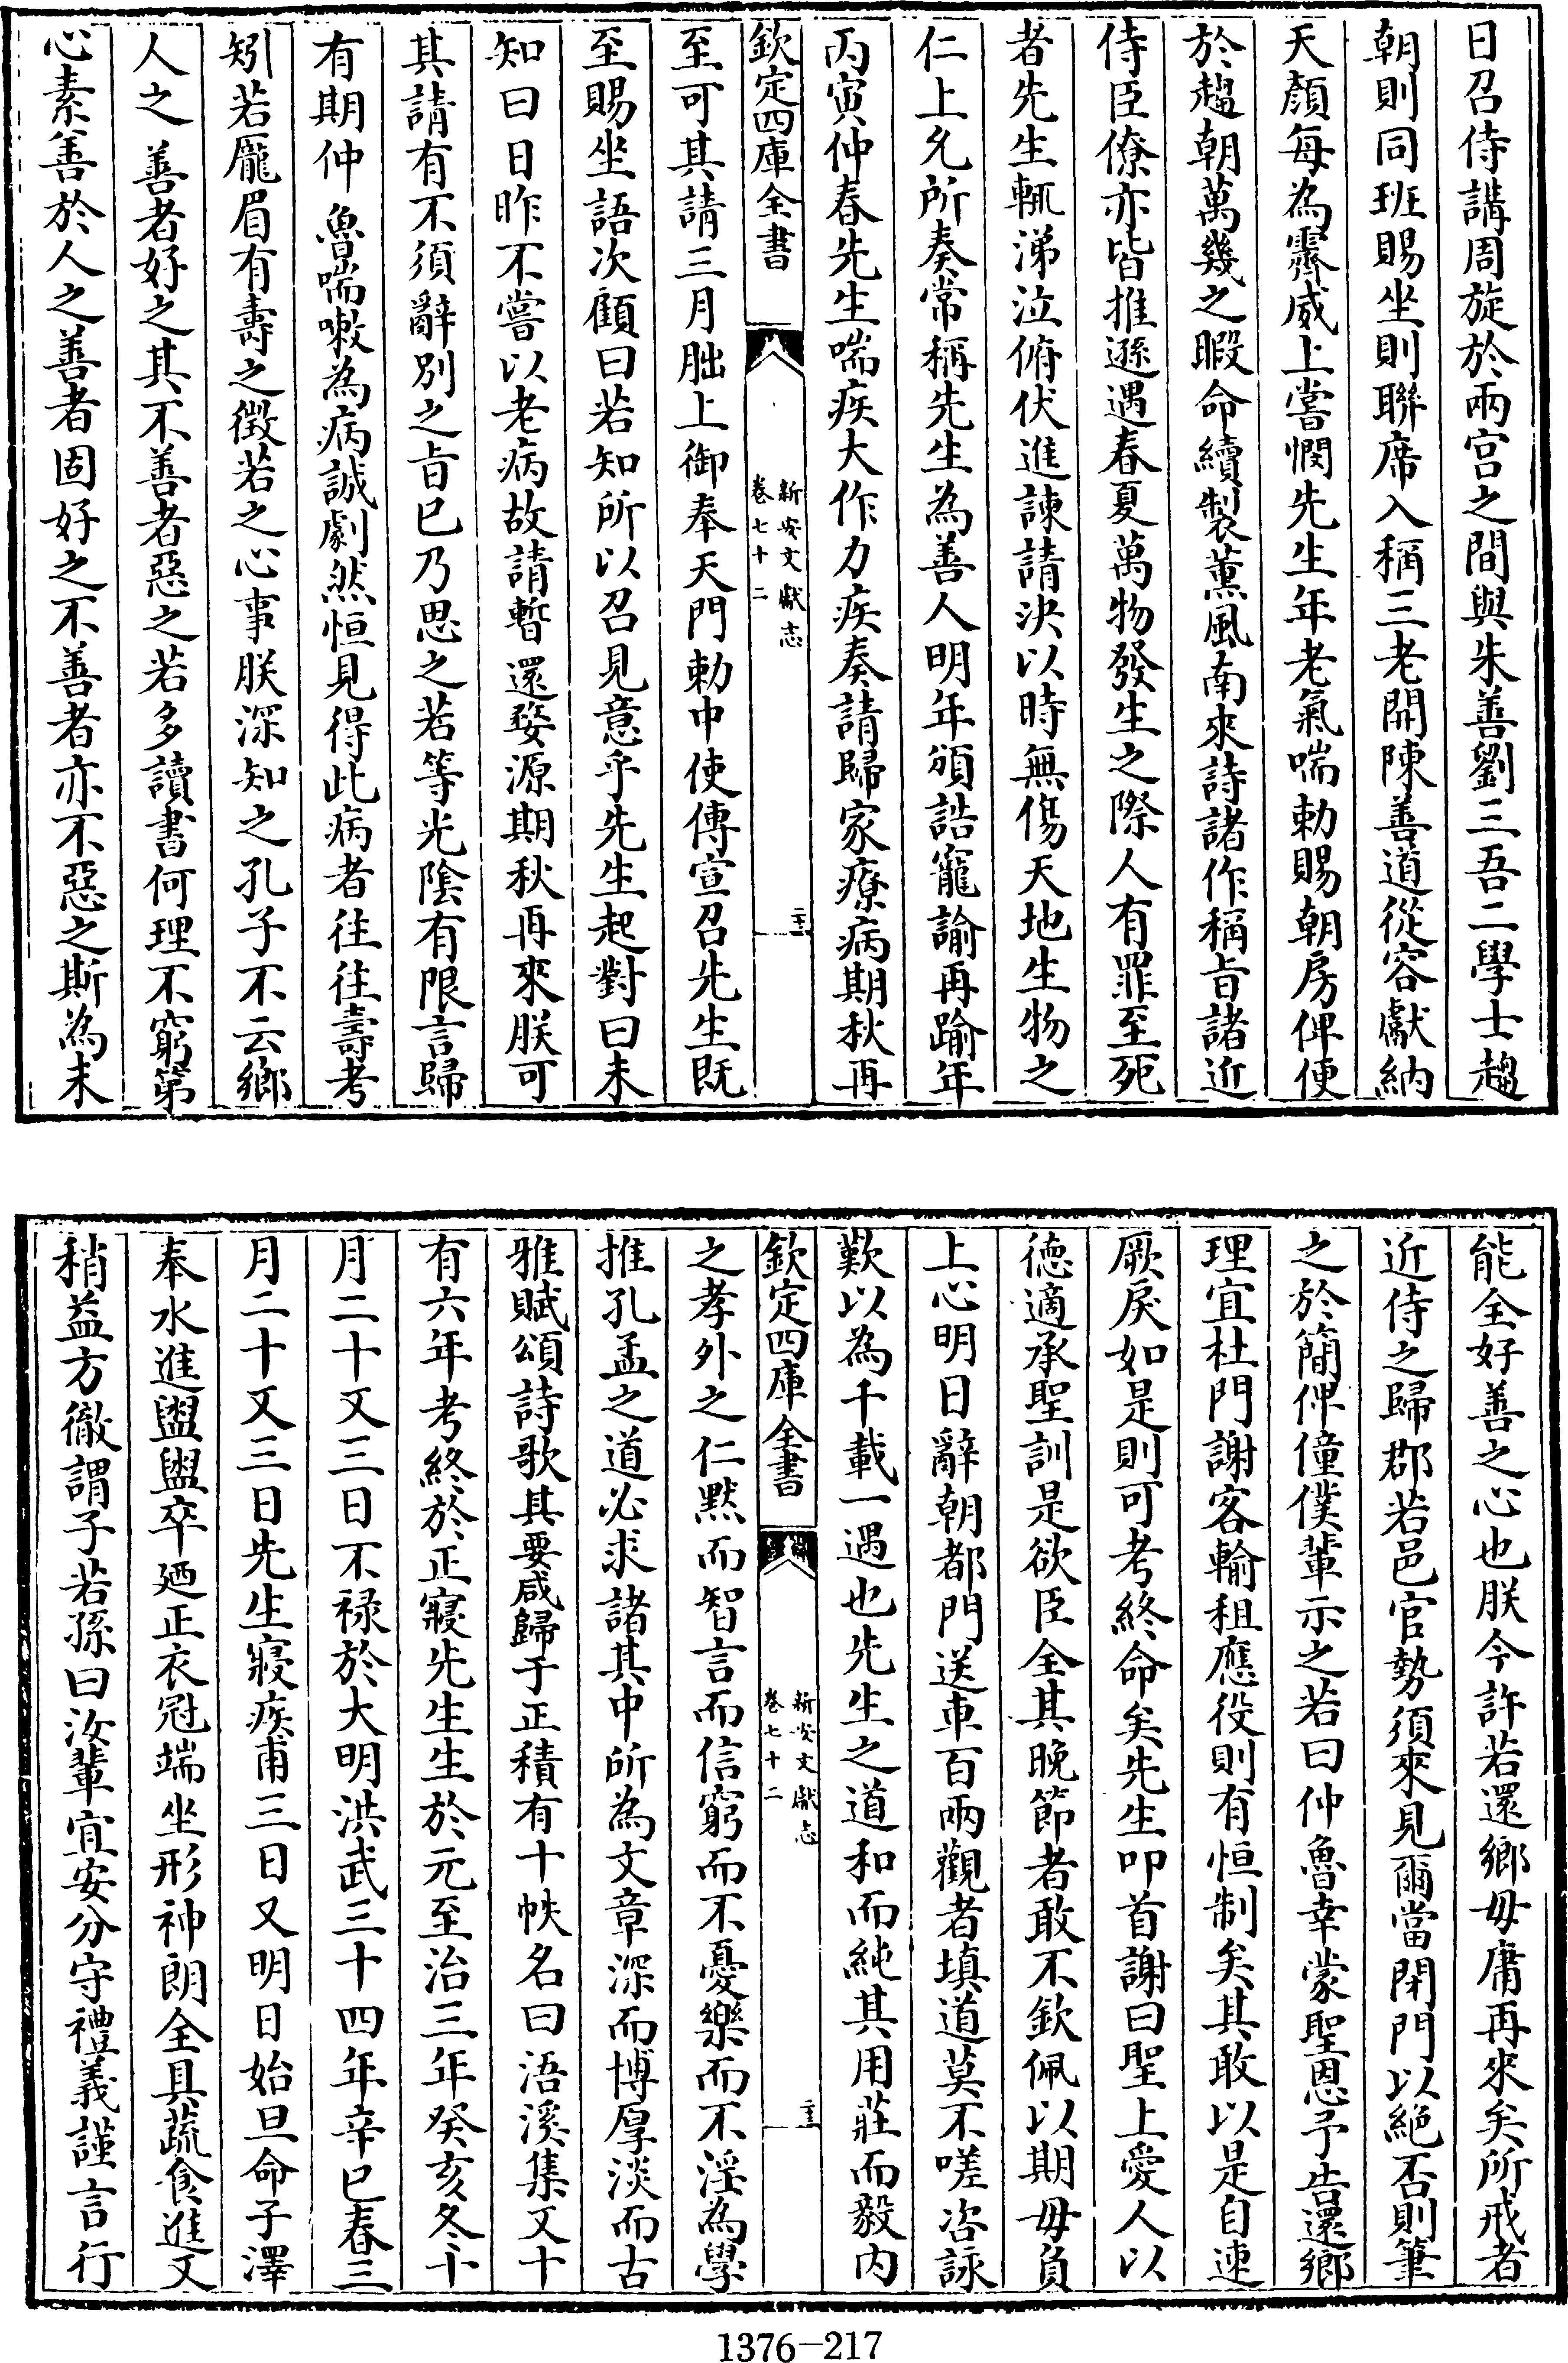 日召侍講周旋於兩宫之間與朱善劉三吾二學士趨
朝則同班賜坐則聯席入稱三老開陳善道從容獻納
天顔每為霽威上嘗憫先生年老氣喘勅賜朝房俾便
於趨朝萬幾之暇命續製薰風南來詩諸作稱旨諸近
侍臣僚亦皆推遜遇春夏萬物發生之際人有罪至死
者先生輒涕泣俯伏進諫請決以時無傷天地生物之
仁上允所奏常稱先生為善人明年頒誥寵諭再踰年
丙寅仲春先生喘疾大作力疾奏請歸家療病期秋再
欽定四庫全書
新安文獻志
卷七十二
至可其請三月朏上御奉天門勅中使傳宣召先生既
至賜坐語次顧曰若知所以召見意乎先生起對曰未
知曰日昨不嘗以老病故請暫還婺源期秋再來朕可
其請有不須辭別之旨已乃思之若等光陰有限言歸
有期仲魯喘嗽為病誠劇然恒見得此病者往往壽考
矧若厖眉有壽之徵若之心事朕深知之孔子不云鄉
人之善者好之其不善者惡之若多讀書何理不窮第
心素善於人之善者固好之不善者亦不惡之斯為未
能全好善之心也朕今許若還鄉毋庸再來矣所戒者
近侍之歸郡若邑官勢須來見爾當閉門以絶否則筆
之於簡俾僮僕輩示之若曰仲魯幸蒙聖恩予告還鄉
理宜杜門謝客輸租應役則有恒制矣其敢以是自速
厥戾如是則可考終命矣先生叩首謝曰聖上愛人以
徳適承聖訓是欲臣全其晩節者敢不欽佩以期毋負
上心明日辭朝都門送車百兩觀者填道莫不嗟咨詠
歎以為千載一遇也先生之道和而純其用莊而毅内
欽定四庫全書
新安文獻志
卷七十二
之孝外之仁默而智言而信窮而不憂樂而不淫為學
推孔孟之道必求諸其中所為文章深而博厚淡而古
雅賦頌詩歌其要咸歸于正積有十帙名曰浯溪集又十
有六年考終於正寢先生生於元至治三年癸亥冬十
月二十又三日不禄於大明洪武三十四年辛巳春三
月二十又三日先生寢疾甫三日又明日始旦命子澤
奉水進盥盥卒廼正衣冠端坐形神朗全具蔬食進又
稍益方徹謂子若孫曰汝輩宜安分守禮義謹言行
1376-217